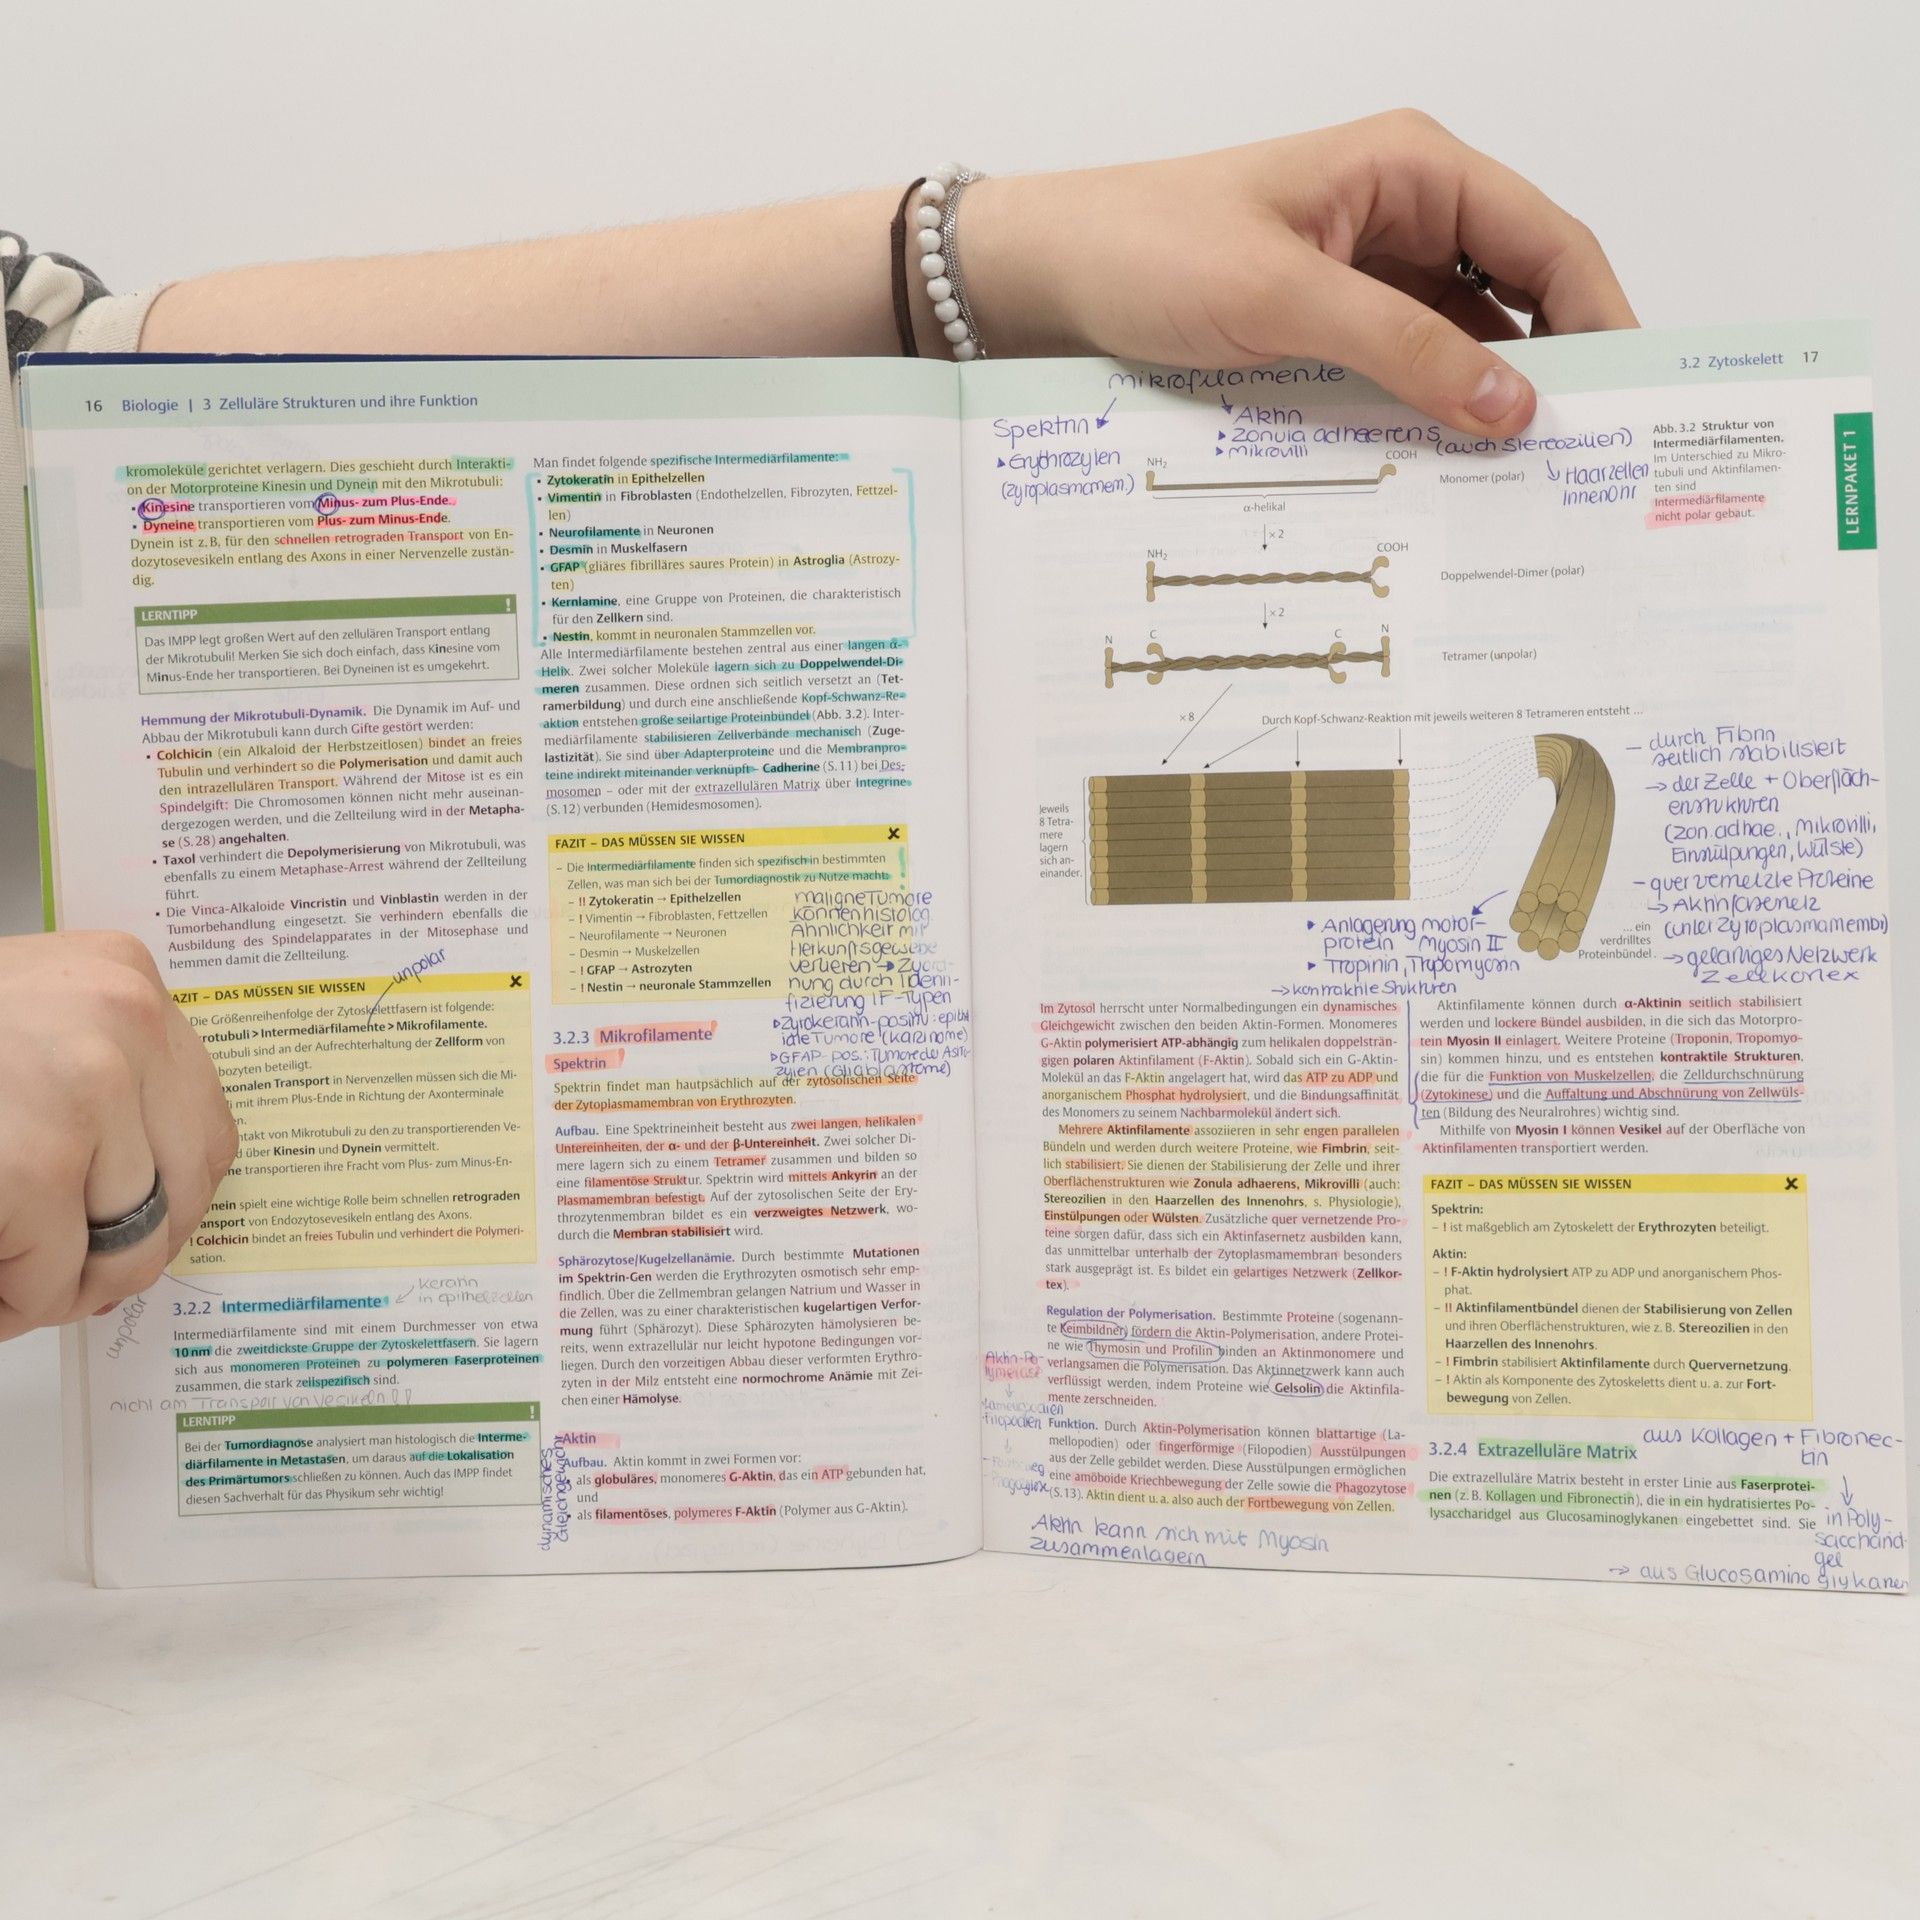 16 Biologie | 3 Zelluläre Strukturen und ihre Funktion
kromoleküle gerichtet verlagern. Dies geschieht durch Interakti-
on der Motorproteine Kinesin und Dynein mit den Mikrotubuli:
▪ Kinesine transportieren vom Minus- zum Plus-Ende.
▪ Dyneine transportieren vom Plus- zum Minus-Ende.
Dynein ist z. B. für den schnellen retrograden Transport von En-
dozytosevesikeln entlang des Axons in einer Nervenzelle zustän-
dig.
LERNTIPP !
Das IMPP legt großen Wert auf den zellulären Transport entlang
der Mikrotubuli! Merken Sie sich doch einfach, dass Kinesine vom
Minus-Ende her transportieren. Bei Dyneinen ist es umgekehrt.
Hemmung der Mikrotubuli-Dynamik. Die Dynamik im Auf- und
Abbau der Mikrotubuli kann durch Gifte gestört werden:
▪ Colchicin (ein Alkaloid der Herbstzeitlosen) bindet an freies
Tubulin und verhindert so die Polymerisation und damit auch
den intrazellulären Transport. Während der Mitose ist es ein
Spindelgift: Die Chromosomen können nicht mehr auseinan-
dergezogen werden, und die Zellteilung wird in der Metapha-
se (S. 28) angehalten.
▪ Taxol verhindert die Depolymerisierung von Mikrotubuli, was
ebenfalls zu einem Metaphase-Arrest während der Zellteilung
führt.
▪ Die Vinca-Alkaloide Vincristin und Vinblastin werden in der
Tumorbehandlung eingesetzt. Sie verhindern ebenfalls die
Ausbildung des Spindelapparates in der Mitosephase und
hemmen damit die Zellteilung.
unpolar
AZIT – DAS MÜSSEN SIE WISSEN
Die Größenreihenfolge der Zytoskelettfasern ist folgende:
rotubuli > Intermediärfilamente > Mikrofilamente.
otubuli sind an der Aufrechterhaltung der Zellform von
bozyten beteiligt.
xonalen Transport in Nervenzellen müssen sich die Mi-
i mit ihrem Plus-Ende in Richtung der Axonterminale
n.
ntakt von Mikrotubuli zu den zu transportierenden Ve-
d über Kinesin und Dynein vermittelt.
ne transportieren ihre Fracht vom Plus- zum Minus-En-
nein spielt eine wichtige Rolle beim schnellen retrograden
ansport von Endozytosevesikeln entlang des Axons.
! Colchicin bindet an freies Tubulin und verhindert die Polymeri-
sation.
unpolar
3.2.2 Intermediärfilamente
Keratin
in epithelzellen
Intermediärfilamente sind mit einem Durchmesser von etwa
10 nm die zweitdickste Gruppe der Zytoskelettfasern. Sie lagern
sich aus monomeren Proteinen zu polymeren Faserproteinen
zusammen, die stark zellspezifisch sind.
nicht am Transport von Vesikeln !!
LERNTIPP !
Bei der Tumordiagnose analysiert man histologisch die Interme-
diärfilamente in Metastasen, um daraus auf die Lokalisation
des Primärtumors schließen zu können. Auch das IMPP findet
diesen Sachverhalt für das Physikum sehr wichtig!
Man findet folgende spezifische Intermediärfilamente:
▪ Zytokeratin in Epithelzellen
▪ Vimentin in Fibroblasten (Endothelzellen, Fibrozyten, Fettzel-
len)
▪ Neurofilamente in Neuronen
▪ Desmin in Muskelfasern
▪ GFAP (gliäres fibrilläres saures Protein) in Astroglia (Astrozy-
ten)
▪ Kernlamine, eine Gruppe von Proteinen, die charakteristisch
für den Zellkern sind.
▪ Nestin, kommt in neuronalen Stammzellen vor.
Alle Intermediärfilamente bestehen zentral aus einer langen α-
Helix. Zwei solcher Moleküle lagern sich zu Doppelwendel-Di-
meren zusammen. Diese ordnen sich seitlich versetzt an (Tet-
ramerbildung) und durch eine anschließende Kopf-Schwanz-Re-
aktion entstehen große seilartige Proteinbündel (Abb. 3.2). Inter-
mediärfilamente stabilisieren Zellverbände mechanisch (Zuge-
lastizität). Sie sind über Adapterproteine und die Membranpro-
teine indirekt miteinander verknüpft – Cadherine (S. 11) bei Des-
mosomen – oder mit der extrazellulären Matrix über Integrine
(S. 12) verbunden (Hemidesmosomen).
FAZIT – DAS MÜSSEN SIE WISSEN
– Die Intermediärfilamente finden sich spezifisch in bestimmten
Zellen, was man sich bei der Tumordiagnostik zu Nutze macht:
– !! Zytokeratin → Epithelzellen
– ! Vimentin → Fibroblasten, Fettzellen
– Neurofilamente → Neuronen
– Desmin → Muskelzellen
– ! GFAP → Astrozyten
– ! Nestin → neuronale Stammzellen
maligne Tumore
können histolog.
Ähnlichkeit mit
Herkunftsgewebe
verlieren → Zuord-
nung durch Identi-
fizierung IF-Typen
▸ Zytokeratin-positiv: epithe
iale Tumore (Karzinome)
▸ GFAP-pos.: Tumore de Astro-
zyten (Glioblastome)
3.2.3 Mikrofilamente
Spektrin
Spektrin findet man hautpsächlich auf der zytosolischen Seite
der Zytoplasmamembran von Erythrozyten.
Aufbau. Eine Spektrineinheit besteht aus zwei langen, helikalen
Untereinheiten, der α- und der β-Untereinheit. Zwei solcher Di-
mere lagern sich zu einem Tetramer zusammen und bilden so
eine filamentöse Struktur. Spektrin wird mittels Ankyrin an der
Plasmamembran befestigt. Auf der zytosolischen Seite der Ery-
throzytenmembran bildet es ein verzweigtes Netzwerk, wo-
durch die Membran stabilisiert wird.
Sphärozytose/Kugelzellanämie. Durch bestimmte Mutationen
im Spektrin-Gen werden die Erythrozyten osmotisch sehr emp-
findlich. Über die Zellmembran gelangen Natrium und Wasser in
die Zellen, was zu einer charakteristischen kugelartigen Verfor-
mung führt (Sphärozyt). Diese Sphärozyten hämolysieren be-
reits, wenn extrazellulär nur leicht hypotone Bedingungen vor-
liegen. Durch den vorzeitigen Abbau dieser verformten Erythro-
zyten in der Milz entsteht eine normochrome Anämie mit Zei-
chen einer Hämolyse.
Aktin
Aufbau. Aktin kommt in zwei Formen vor:
▪ als globuläres, monomeres G-Aktin, das ein ATP gebunden hat,
und
▪ als filamentöses, polymeres F-Aktin (Polymer aus G-Aktin).
dynamisches
Gleichgewicht
3.2 Zytoskelett 17
LERNPAKET 1
mikrofilamente
Spektrin
▸ Erythrozyten
(zytoplasmamem.)
Aktin
▸ Zonula adhaerens
▸ mikrovilli
(auch Stereozilien)
Haarzellen
Innenohr
NH₂
COOH
Monomer (polar)
α-helikal
×2
NH₂
COOH
Doppelwendel-Dimer (polar)
×2
N C C N
Tetramer (unpolar)
×8
Durch Kopf-Schwanz-Reaktion mit jeweils weiteren 8 Tetrameren entsteht ...
Jeweils
8 Tetra-
mere
lagern
sich an-
einander.
... ein
verdrilltes
Proteinbündel.
Abb. 3.2 Struktur von
Intermediärfilamenten.
Im Unterschied zu Mikro-
tubuli und Aktinfilamen-
ten sind
Intermediärfilamente
nicht polar gebaut.
– durch Fibrin
seitlich stabilisiert
→ der Zelle + Oberfläch-
enstrukturen
(zon. adhae., Mikrovilli,
Einstülpungen, Wülste)
– quer vernetzte Proteine
→ Aktinfasernetz
(unter Zytoplasmamembr)
→ gelartiges Netzwerk
Zellkortex
▸ Anlagerung motor-
protein Myosin II
▸ Tropinin, Tropomyosin
→ kontraktile Strukturen
Im Zytosol herrscht unter Normalbedingungen ein dynamisches
Gleichgewicht zwischen den beiden Aktin-Formen. Monomeres
G-Aktin polymerisiert ATP-abhängig zum helikalen doppelsträn-
gigen polaren Aktinfilament (F-Aktin). Sobald sich ein G-Aktin-
Molekül an das F-Aktin angelagert hat, wird das ATP zu ADP und
anorganischem Phosphat hydrolysiert, und die Bindungsaffinität
des Monomers zu seinem Nachbarmolekül ändert sich.
Mehrere Aktinfilamente assoziieren in sehr engen parallelen
Bündeln und werden durch weitere Proteine, wie Fimbrin, seit-
lich stabilisiert. Sie dienen der Stabilisierung der Zelle und ihrer
Oberflächenstrukturen wie Zonula adhaerens, Mikrovilli (auch:
Stereozilien in den Haarzellen des Innenohrs, s. Physiologie),
Einstülpungen oder Wülsten. Zusätzliche quer vernetzende Pro-
teine sorgen dafür, dass sich ein Aktinfasernetz ausbilden kann,
das unmittelbar unterhalb der Zytoplasmamembran besonders
stark ausgeprägt ist. Es bildet ein gelartiges Netzwerk (Zellkor-
tex).
Regulation der Polymerisation. Bestimmte Proteine (sogenann-
te Keimbildner) fördern die Aktin-Polymerisation, andere Protei-
ne wie Thymosin und Profilin binden an Aktinmonomere und
verlangsamen die Polymerisation. Das Aktinnetzwerk kann auch
verflüssigt werden, indem Proteine wie Gelsolin die Aktinfila-
mente zerschneiden.
Funktion. Durch Aktin-Polymerisation können blattartige (La-
mellopodien) oder fingerförmige (Filopodien) Ausstülpungen
aus der Zelle gebildet werden. Diese Ausstülpungen ermöglichen
eine amöboide Kriechbewegung der Zelle sowie die Phagozytose
(S. 13). Aktin dient u. a. also auch der Fortbewegung von Zellen.
Aktin-Po-
lymerase
-Lamellipodien
-Filopodien
Aktin kann sich mit Myosin
zusammenlagern
Aktinfilamente können durch α-Aktinin seitlich stabilisiert
werden und lockere Bündel ausbilden, in die sich das Motorpro-
tein Myosin II einlagert. Weitere Proteine (Troponin, Tropomyo-
sin) kommen hinzu, und es entstehen kontraktile Strukturen,
die für die Funktion von Muskelzellen, die Zelldurchschnürung
(Zytokinese) und die Auffaltung und Abschnürung von Zellwüls-
ten (Bildung des Neuralrohres) wichtig sind.
Mithilfe von Myosin I können Vesikel auf der Oberfläche von
Aktinfilamenten transportiert werden.
FAZIT – DAS MÜSSEN SIE WISSEN
Spektrin:
– ! ist maßgeblich am Zytoskelett der Erythrozyten beteiligt.
Aktin:
– ! F-Aktin hydrolysiert ATP zu ADP und anorganischem Phos-
phat.
– !! Aktinfilamentbündel dienen der Stabilisierung von Zellen
und ihren Oberflächenstrukturen, wie z. B. Stereozilien in den
Haarzellen des Innenohrs.
– ! Fimbrin stabilisiert Aktinfilamente durch Quervernetzung.
– ! Aktin als Komponente des Zytoskeletts dient u. a. zur Fort-
bewegung von Zellen.
3.2.4 Extrazelluläre Matrix
aus Kollagen + Fibronec-
tin
Die extrazelluläre Matrix besteht in erster Linie aus Faserprotei-
nen (z. B. Kollagen und Fibronectin), die in ein hydratisiertes Po-
lysaccharidgel aus Glucosaminoglykanen eingebettet sind. Sie
in Poly-
saccharid-
gel
→ aus Glucosaminoglykanen